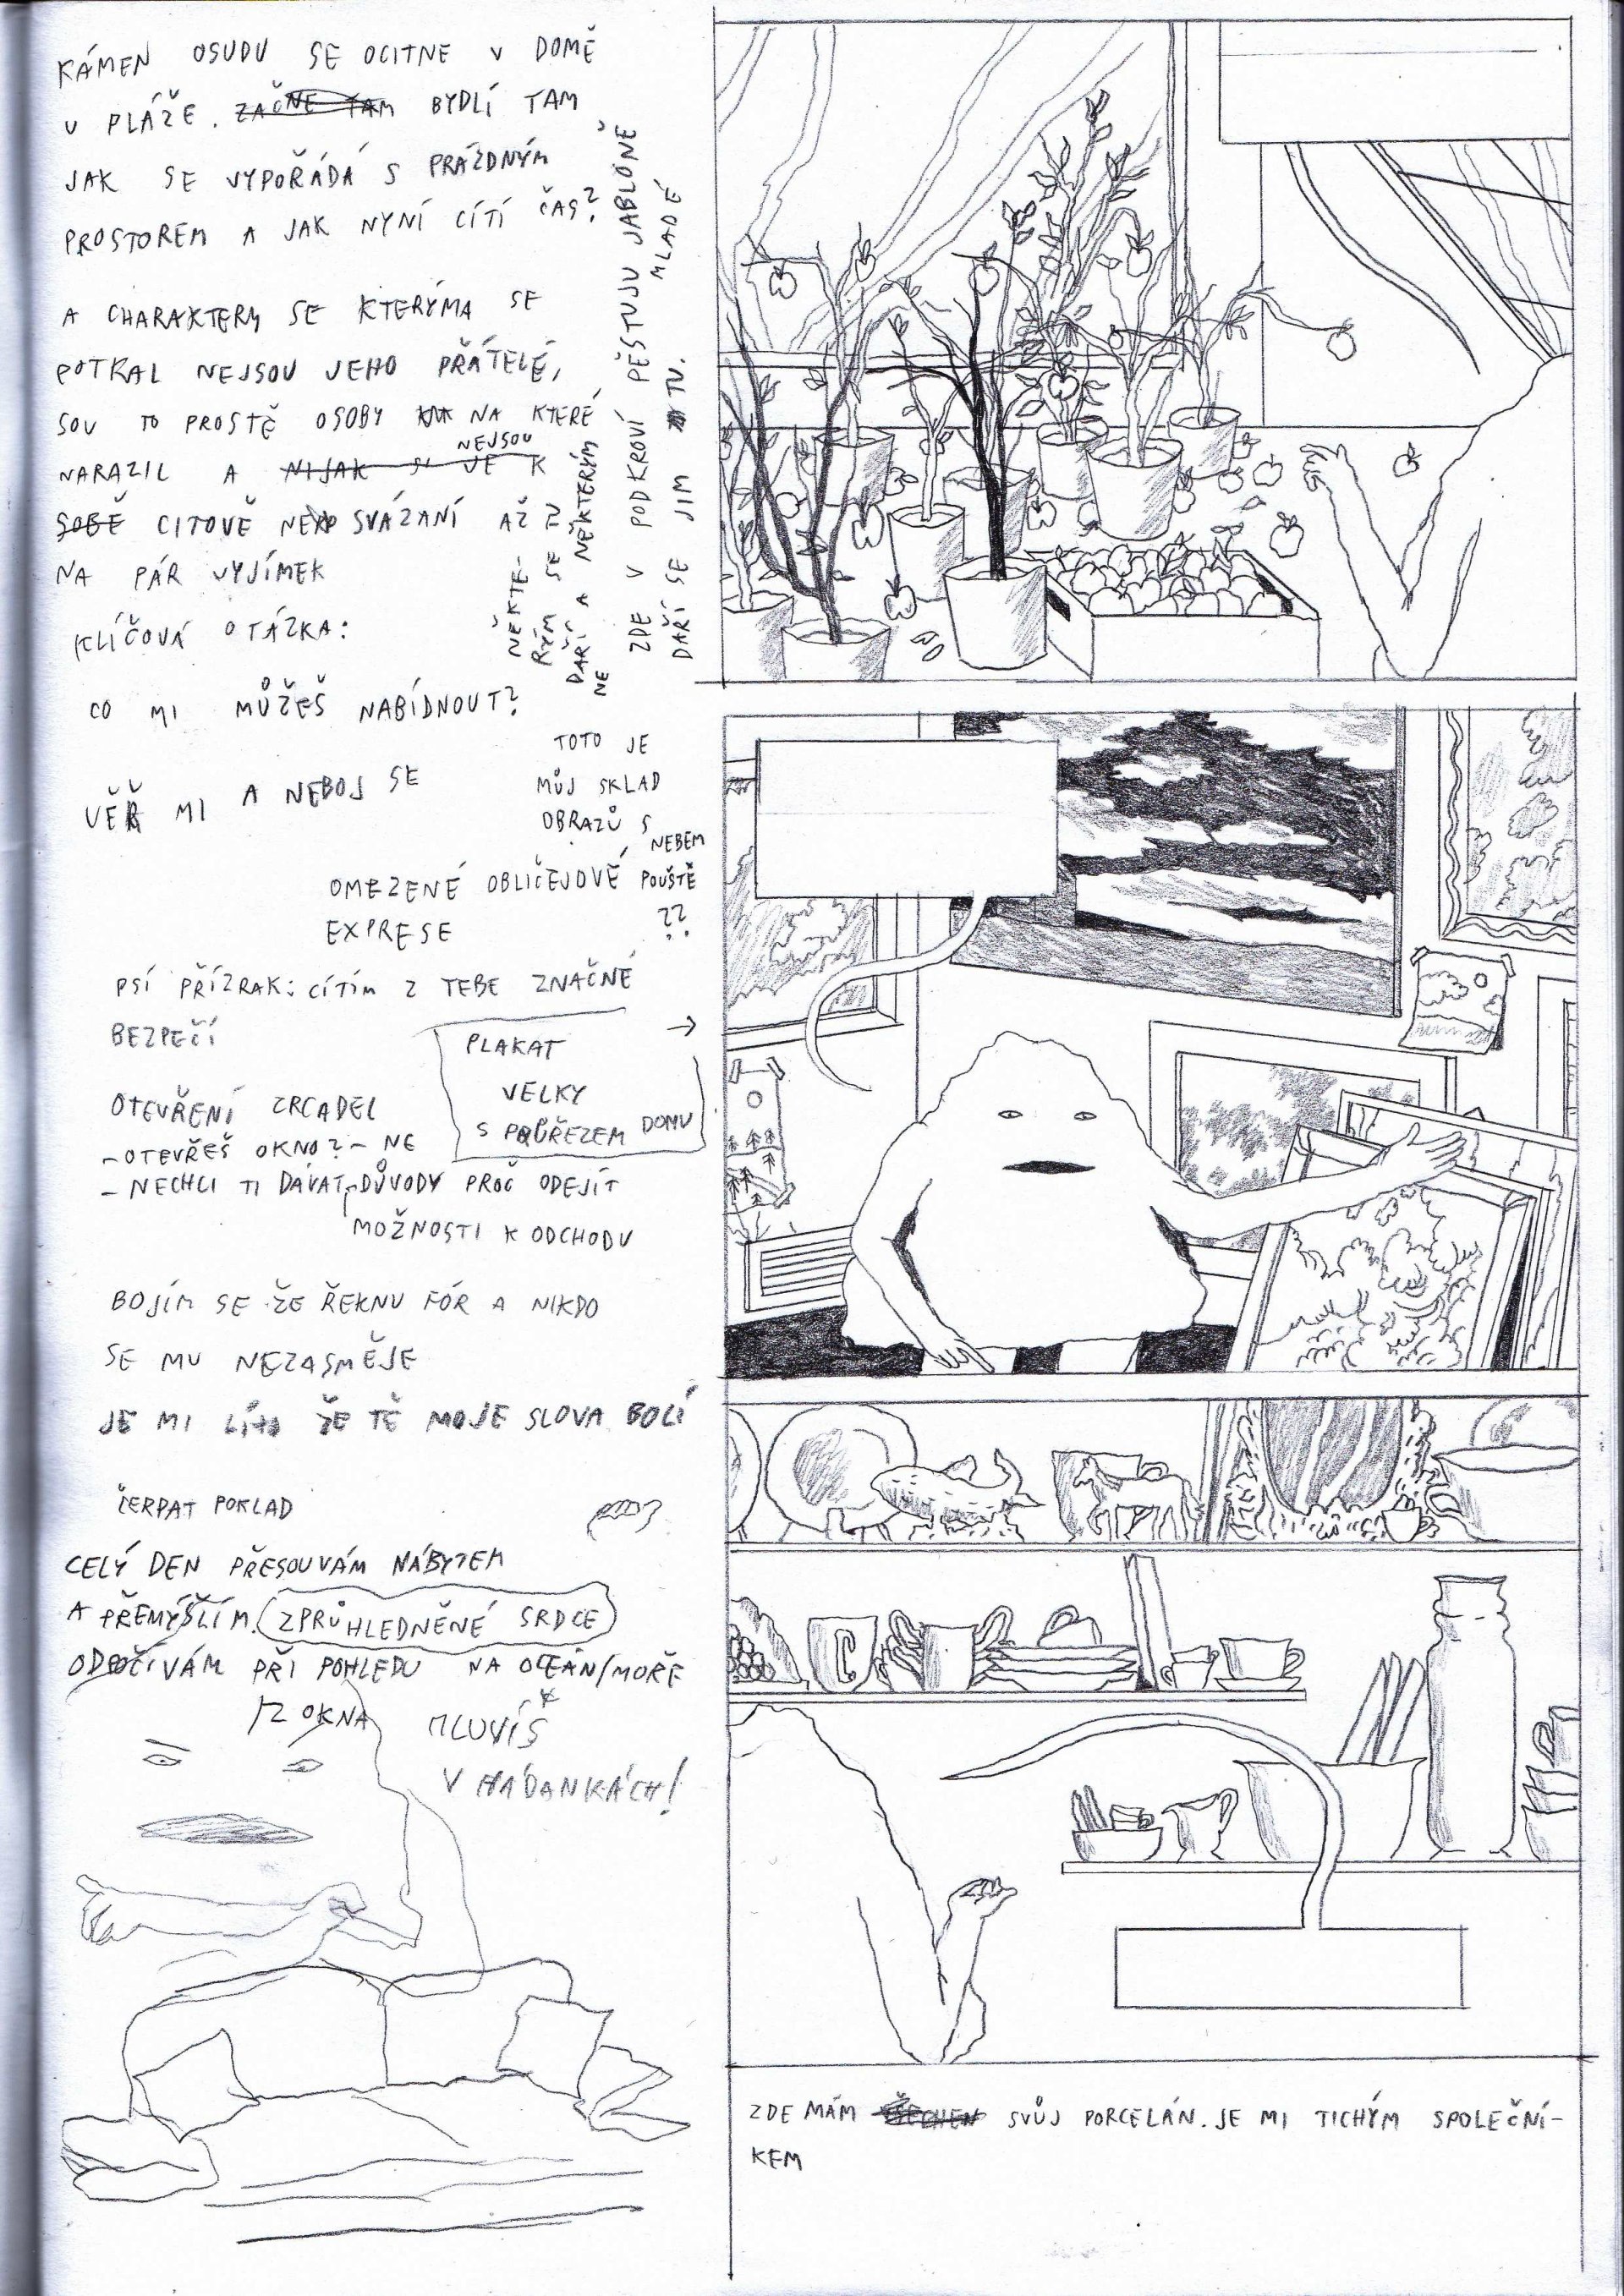 KÁMEN OSUDU SE OCITNE V DOMĚ
U PLÁŽE. ZAČNE TAM BYDLÍ TAM
JAK SE VYPOŘÁDÁ S PRÁZDNÝM
PROSTOREM A JAK NYNÍ CÍTÍ ČAS?
A CHARAKTERY SE KTERÝMA SE
POTKAL NEJSOU JEHO PŘÁTELÉ,
SOU TO PROSTĚ OSOBY NA KTERÉ
NARAZIL A NIJAK SI JE K
NEJSOU
SOBĚ CITOVĚ SVÁZANÍ AŽ
NA PÁR VYJÍMEK
KLÍČOVÁ OTÁZKA:
CO MI MŮŽEŠ NABÍDNOUT?
VĚŘ MI A NEBOJ SE
ZDE V PODKROVÍ PĚSTUJU JABLONĚ
MLADÉ
DAŘÍ SE JIM TU.
NĚKTE-
RÝM SE TU
DAŘÍ A NĚKTERÝM
NE
TOTO JE
MŮJ SKLAD
OBRAZŮ S
NEBEM
POUŠTĚ
??
OMEZENÉ OBLIČEJOVÉ
EXPRESE
PSÍ PŘÍZRAK: CÍTÍM Z TEBE ZNAČNÉ
BEZPEČÍ
PLAKAT
VELKY
S PRŮŘEZEM DOMU
OTEVŘENÍ ZRCADEL
- OTEVŘEŠ OKNO? - NE
- NECHCI TI DÁVAT DŮVODY PROČ ODEJÍT
MOŽNOSTI K ODCHODU
BOJÍM SE ŽE ŘEKNU FÓR A NIKDO
SE MU NEZASMĚJE
JE MI LÍTO ŽE TĚ MOJE SLOVA BOLÍ
ČERPAT POKLAD
CELÝ DEN PŘESOUVÁM NÁBYTEK
A PŘEMÝŠLÍM. ZPRŮHLEDNĚNÉ SRDCE
ODPOČÍVÁM PŘI POHLEDU NA OCEÁN/MOŘE
Z OKNA
MLUVÍŠ
V HÁDANKÁCH!
C
ZDE MÁM VŠECHEN SVŮJ PORCELÁN. JE MI TICHÝM SPOLEČNÍ-
KEM